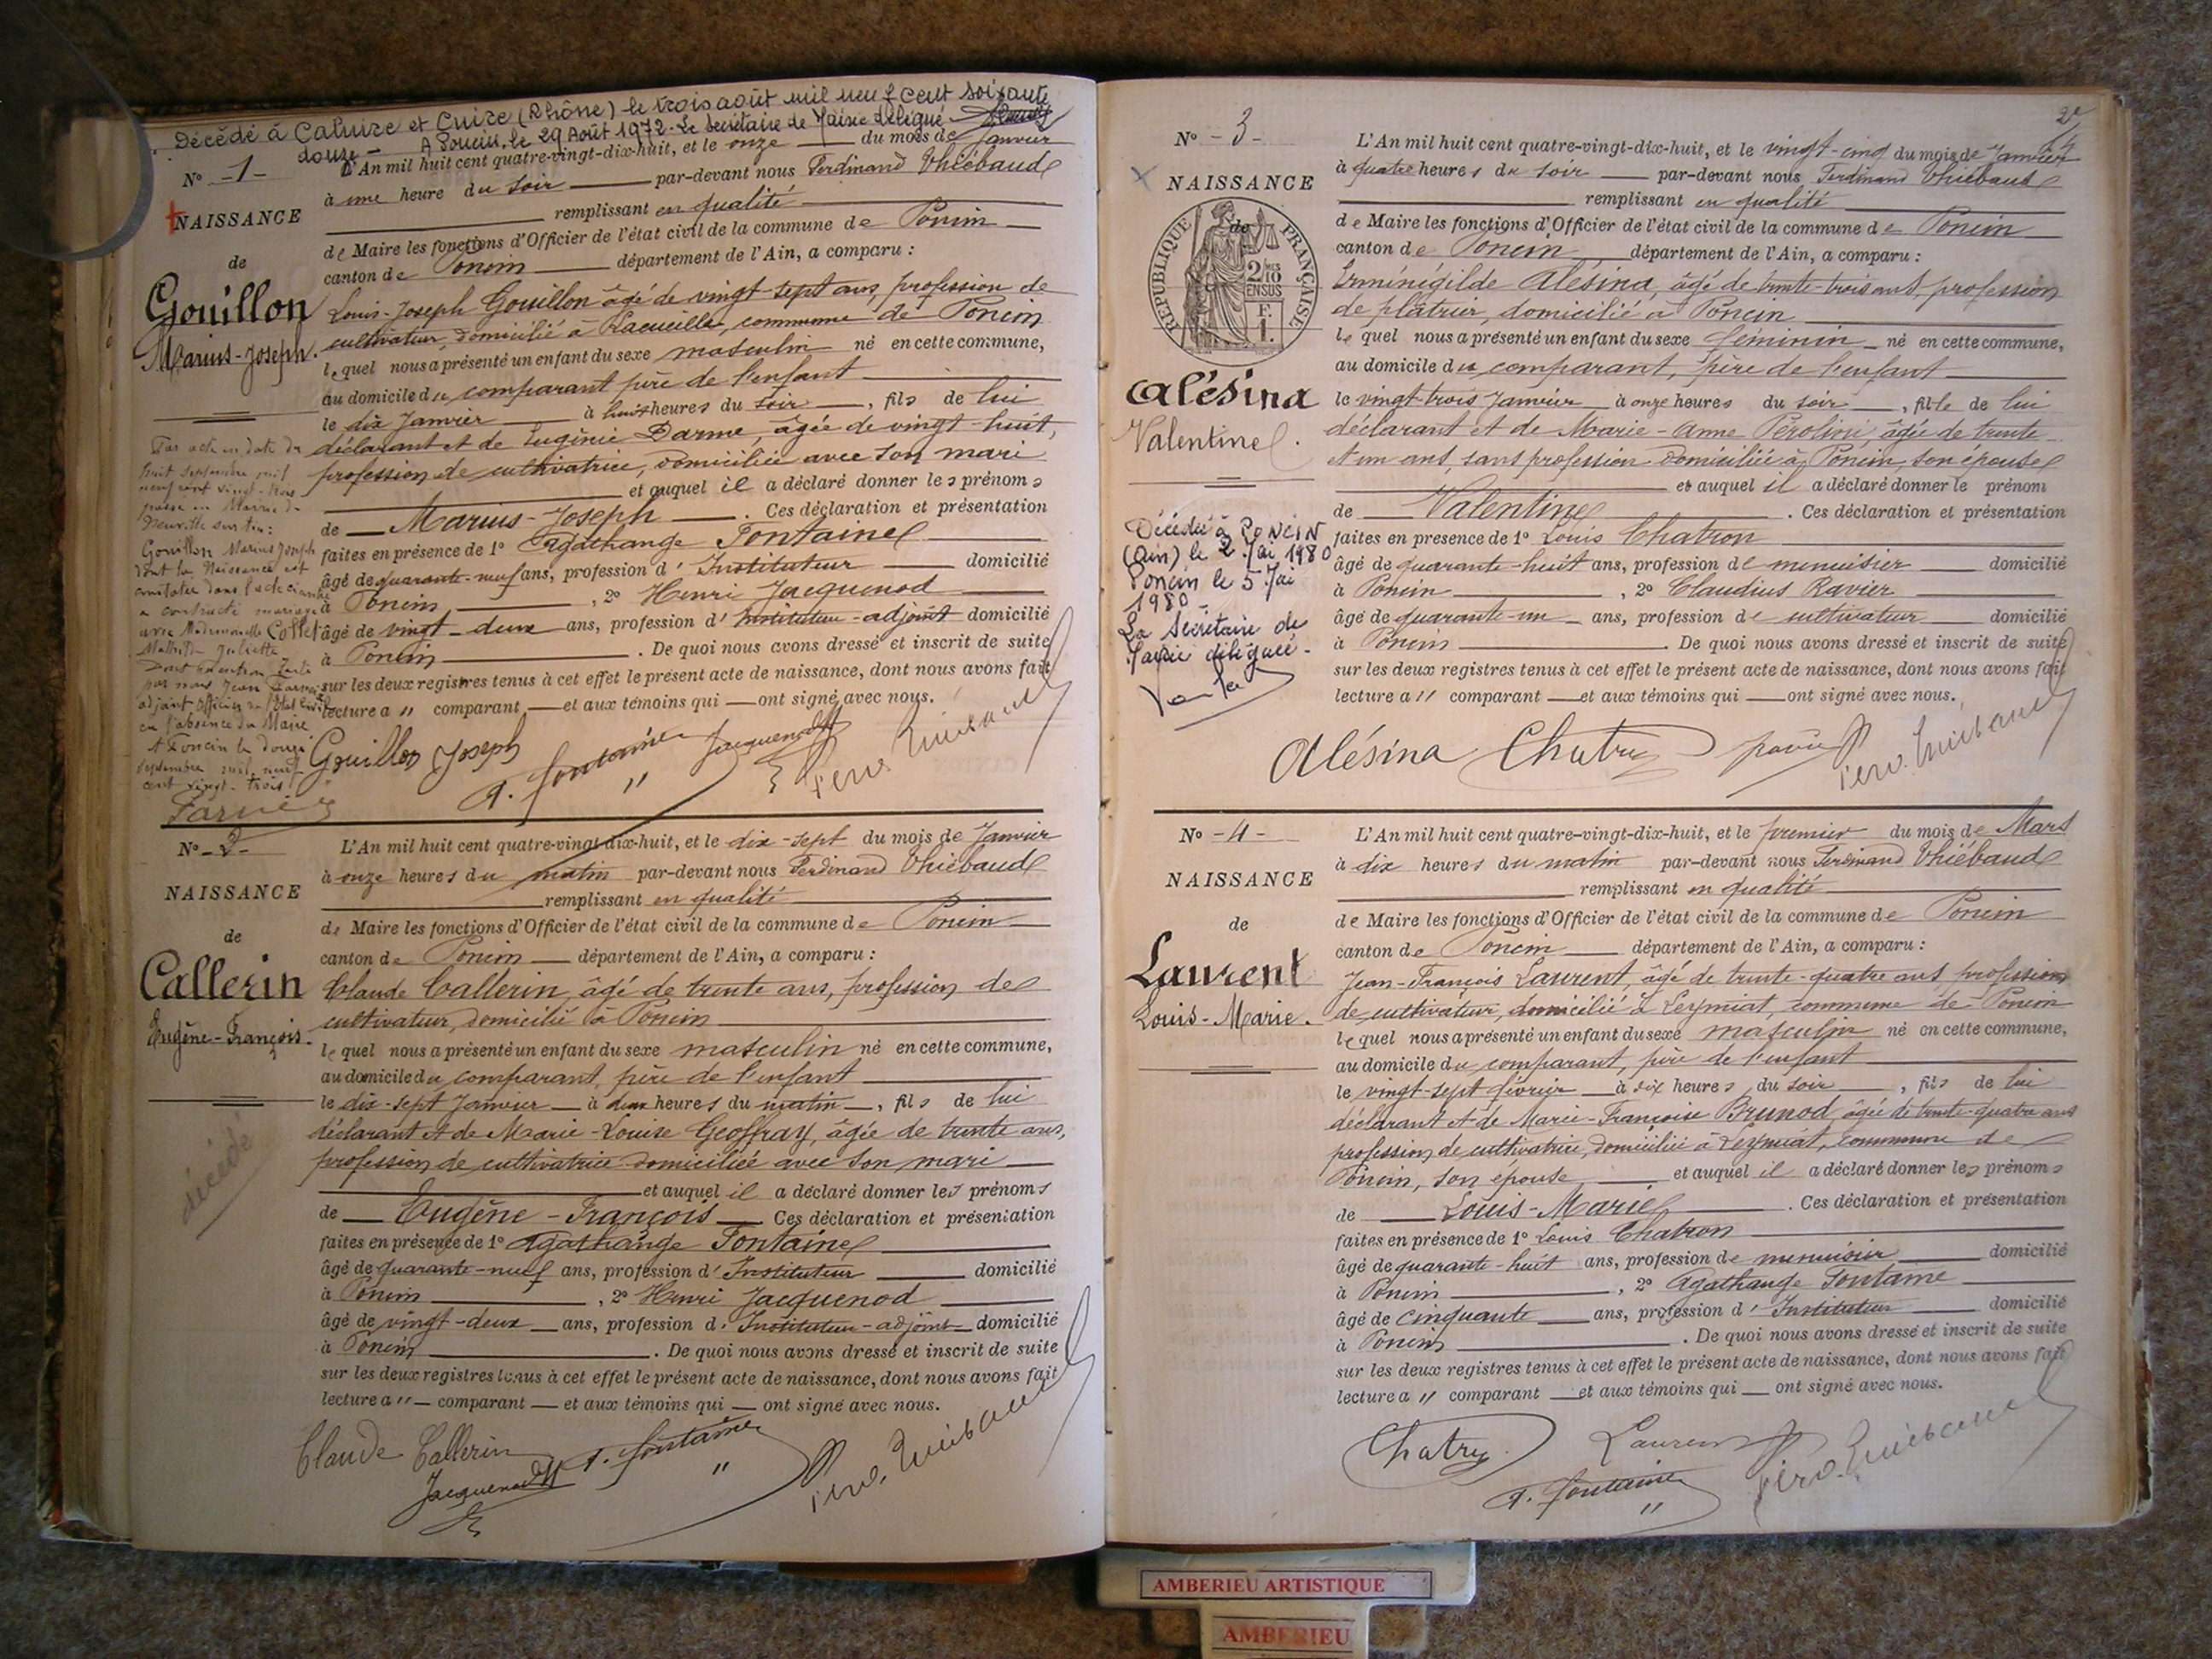 Décédé à Caluire et Cuire (Rhône) le trois août mil neuf cent soixante
douze - A Poncin, le 29 Août 1972. Le Secrétaire de Mairie délégué
N° - 1 -
NAISSANCE
de
Gouillon
Marius-Joseph.
L'An mil huit cent quatre-vingt-dix-huit, et le onze du mois de Janvier
à une heure du soir par-devant nous Ferdinand Thiébaud
remplissant en qualité
de Maire les fonctions d'Officier de l'état civil de la commune de Poncin
canton de Poncin département de l'Ain, a comparu :
Louis-Joseph Gouillon âgé de vingt-sept ans, profession de
cultivateur, domicilié à commune de Poncin
lequel nous a présenté un enfant du sexe masculin né en cette commune,
au domicile du comparant père de l'enfant
le dix Janvier à huit heures du soir, fils de lui
déclarant et de Eugénie Darme, âgée de vingt-huit,
profession de cultivatrice, domiciliée avec son mari
et auquel il a déclaré donner les prénoms
de Marius-Joseph. Ces déclaration et présentation
faites en présence de 1° Agathange Fontaine
âgé de quarante-neuf ans, profession d'Instituteur domicilié
à Poncin, 2° Henri Jacquenod
âgé de vingt-deux ans, profession d'Instituteur-adjoint domicilié
à Poncin. De quoi nous avons dressé et inscrit de suite
sur les deux registres tenus à cet effet le présent acte de naissance, dont nous avons fait
lecture a " comparant et aux témoins qui ont signé avec nous.
Par acte en date du
huit septembre mil
neuf cent vingt-trois
passé en Mairie de
Neuville sur Ain :
Gouillon Marius Joseph
dont la Naissance est
constatée dans l'acte ci-contre
a contracté mariage
avec Mademoiselle Collet
Mathilde Juliette
Dont mention faite
par nous Jean
adjoint Officier de l'état civil
en l'absence du Maire
A Poncin le douze
septembre mil neuf
cent vingt-trois
Gouillon Joseph A. Fontaine Jacquenod Ferd. Thiébaud
N° - 2 -
NAISSANCE
de
Callerin
Eugène-François.
décédé
L'An mil huit cent quatre-vingt-dix-huit, et le dix-sept du mois de Janvier
à onze heures du matin par-devant nous Ferdinand Thiébaud
remplissant en qualité
de Maire les fonctions d'Officier de l'état civil de la commune de Poncin
canton de Poncin département de l'Ain, a comparu :
Claude Callerin, âgé de trente ans, profession de
cultivateur, domicilié à Poncin
lequel nous a présenté un enfant du sexe masculin né en cette commune,
au domicile du comparant, père de l'enfant
le dix-sept Janvier à deux heures du matin, fils de lui
déclarant et de Marie-Louise Geoffray, âgée de trente ans,
profession de cultivatrice domiciliée avec son mari
et auquel il a déclaré donner les prénoms
de Eugène-François Ces déclaration et présentation
faites en présence de 1° Agathange Fontaine
âgé de quarante-neuf ans, profession d'Instituteur domicilié
à Poncin, 2° Henri Jacquenod
âgé de vingt-deux ans, profession d'Instituteur-adjoint domicilié
à Poncin. De quoi nous avons dressé et inscrit de suite
sur les deux registres tenus à cet effet le présent acte de naissance, dont nous avons fait
lecture a " comparant et aux témoins qui ont signé avec nous.
Claude Callerin A. Fontaine Ferd. Thiébaud
Jacquenod
N° - 3 -
NAISSANCE
de
RÉPUBLIQUE FRANÇAISE
2/10 EN SUS
F. 1.
Alésina
Valentine.
L'An mil huit cent quatre-vingt-dix-huit, et le vingt-cinq du mois de Janvier
à quatre heures du soir par-devant nous Ferdinand Thiébaud
remplissant en qualité
de Maire les fonctions d'Officier de l'état civil de la commune de Poncin
canton de Poncin, département de l'Ain, a comparu :
Erménégilde Alésina, âgé de trente-trois ans, profession
de plâtrier, domicilié à Poncin
lequel nous a présenté un enfant du sexe féminin né en cette commune,
au domicile du comparant, père de l'enfant
le vingt-trois Janvier à onze heures du soir, fille de lui
déclarant et de Marie-Anne Pérolini, âgée de trente
et un ans, sans profession domiciliée à Poncin, son épouse
et auquel il a déclaré donner le prénom
de Valentine. Ces déclaration et présentation
faites en présence de 1° Louis Chatron
âgé de quarante-huit ans, profession de menuisier domicilié
à Poncin, 2° Claudius Ravier
âgé de quarante-un ans, profession de cultivateur domicilié
à Poncin. De quoi nous avons dressé et inscrit de suite
sur les deux registres tenus à cet effet le présent acte de naissance, dont nous avons fait
lecture a " comparant et aux témoins qui ont signé avec nous.
Décédée à PONCIN
(Ain) le 2 Mai 1980
Poncin le 5 Mai
1980
La Secrétaire de
Mairie déléguée.
Alésina Chatron Ferd. Thiébaud
N° - 4 -
NAISSANCE
de
Laurent
Louis-Marie.
L'An mil huit cent quatre-vingt-dix-huit, et le premier du mois de Mars
à dix heures du matin par-devant nous Ferdinand Thiébaud
remplissant en qualité
de Maire les fonctions d'Officier de l'état civil de la commune de Poncin
canton de Poncin département de l'Ain, a comparu :
Jean-François Laurent, âgé de trente-quatre ans, profession
de cultivateur, domicilié à Leymiat, commune de Poncin
lequel nous a présenté un enfant du sexe masculin né en cette commune,
au domicile du comparant, père de l'enfant
le vingt-sept février à six heures du soir, fils de lui
déclarant et de Marie-Françoise Brunod, âgée de trente-quatre ans
profession de cultivatrice, domiciliée à Leymiat, commune de
Poncin, son épouse, et auquel il a déclaré donner les prénoms
de Louis-Marie. Ces déclaration et présentation
faites en présence de 1° Louis Chatron
âgé de quarante-huit ans, profession de menuisier domicilié
à Poncin, 2° Agathange Fontaine
âgé de cinquante ans, profession d'Instituteur domicilié
à Poncin. De quoi nous avons dressé et inscrit de suite
sur les deux registres tenus à cet effet le présent acte de naissance, dont nous avons fait
lecture a " comparant et aux témoins qui ont signé avec nous.
Chatron Laurent Ferd. Thiébaud
A. Fontaine
AMBERIEU ARTISTIQUE
AMBERIEU